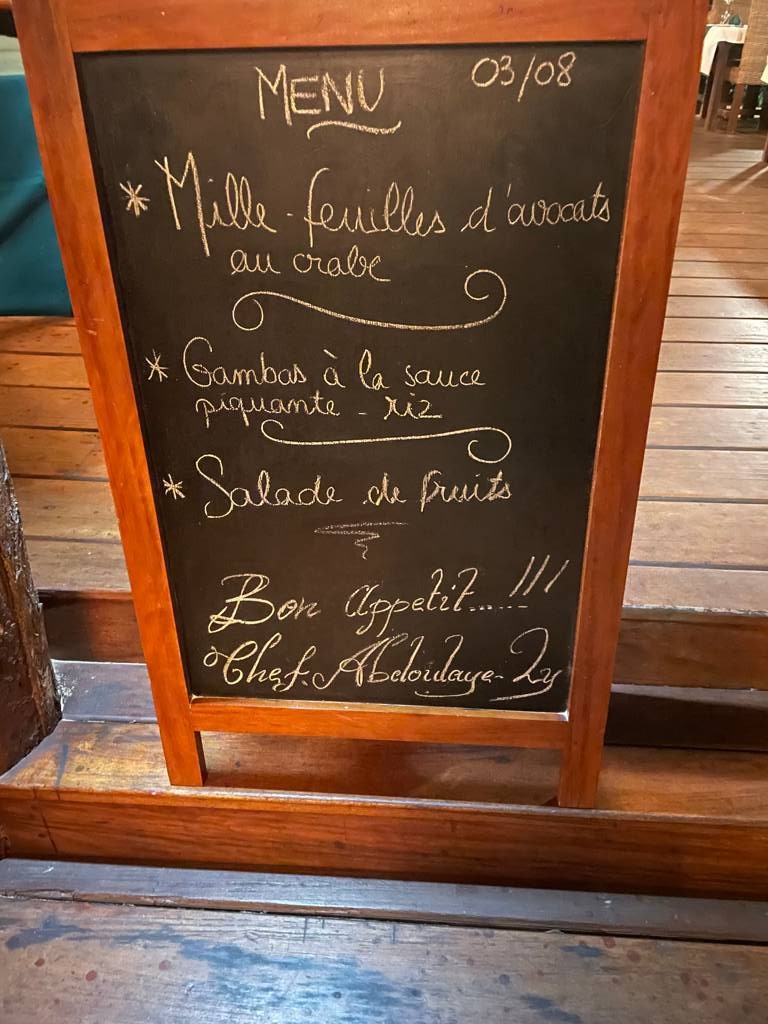 MENU 03/08
* Mille-feuilles d'avocats
au crabe
* Gambas à la sauce
piquante - riz
* Salade de fruits
Bon appetit......!!!
Chef. Abdoulaye Ly